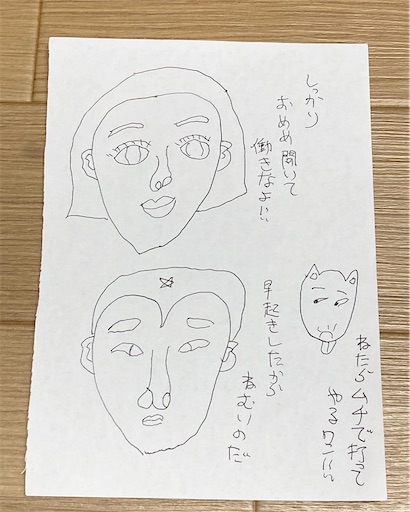 しっかり
おめめ開いて
働きなよ!!
早起きしたから
ねむいのだ
ねたらムチで打って
やるワン!!